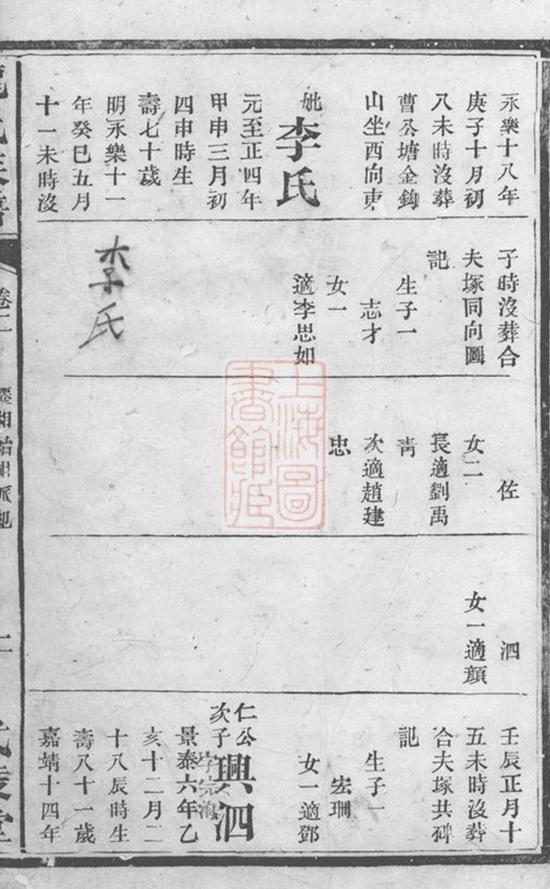 永樂十八年
庚子十月初
八未時沒葬
曹公塘金鈎
山坐西向東
妣李氏
元至正四年
甲申三月初
四申時生
壽七十歲
明永樂十一
年癸巳五月
十一未時沒
子時沒葬合
夫塚同向圖
記
生子一
志才
女一
適李思如
李氏
佐
女二
長適劉禹
青
次適趙建
忠
泗
女一適顏
壬辰正月十
五未時沒葬
合夫塚共碑
記
生子一
宏珊
女一適鄧
仁公
次子
興泗
字宗海
景泰六年乙
亥十二月二
十八辰時生
壽八十一歲
嘉靖十四年
上海圖
書館藏
卷二